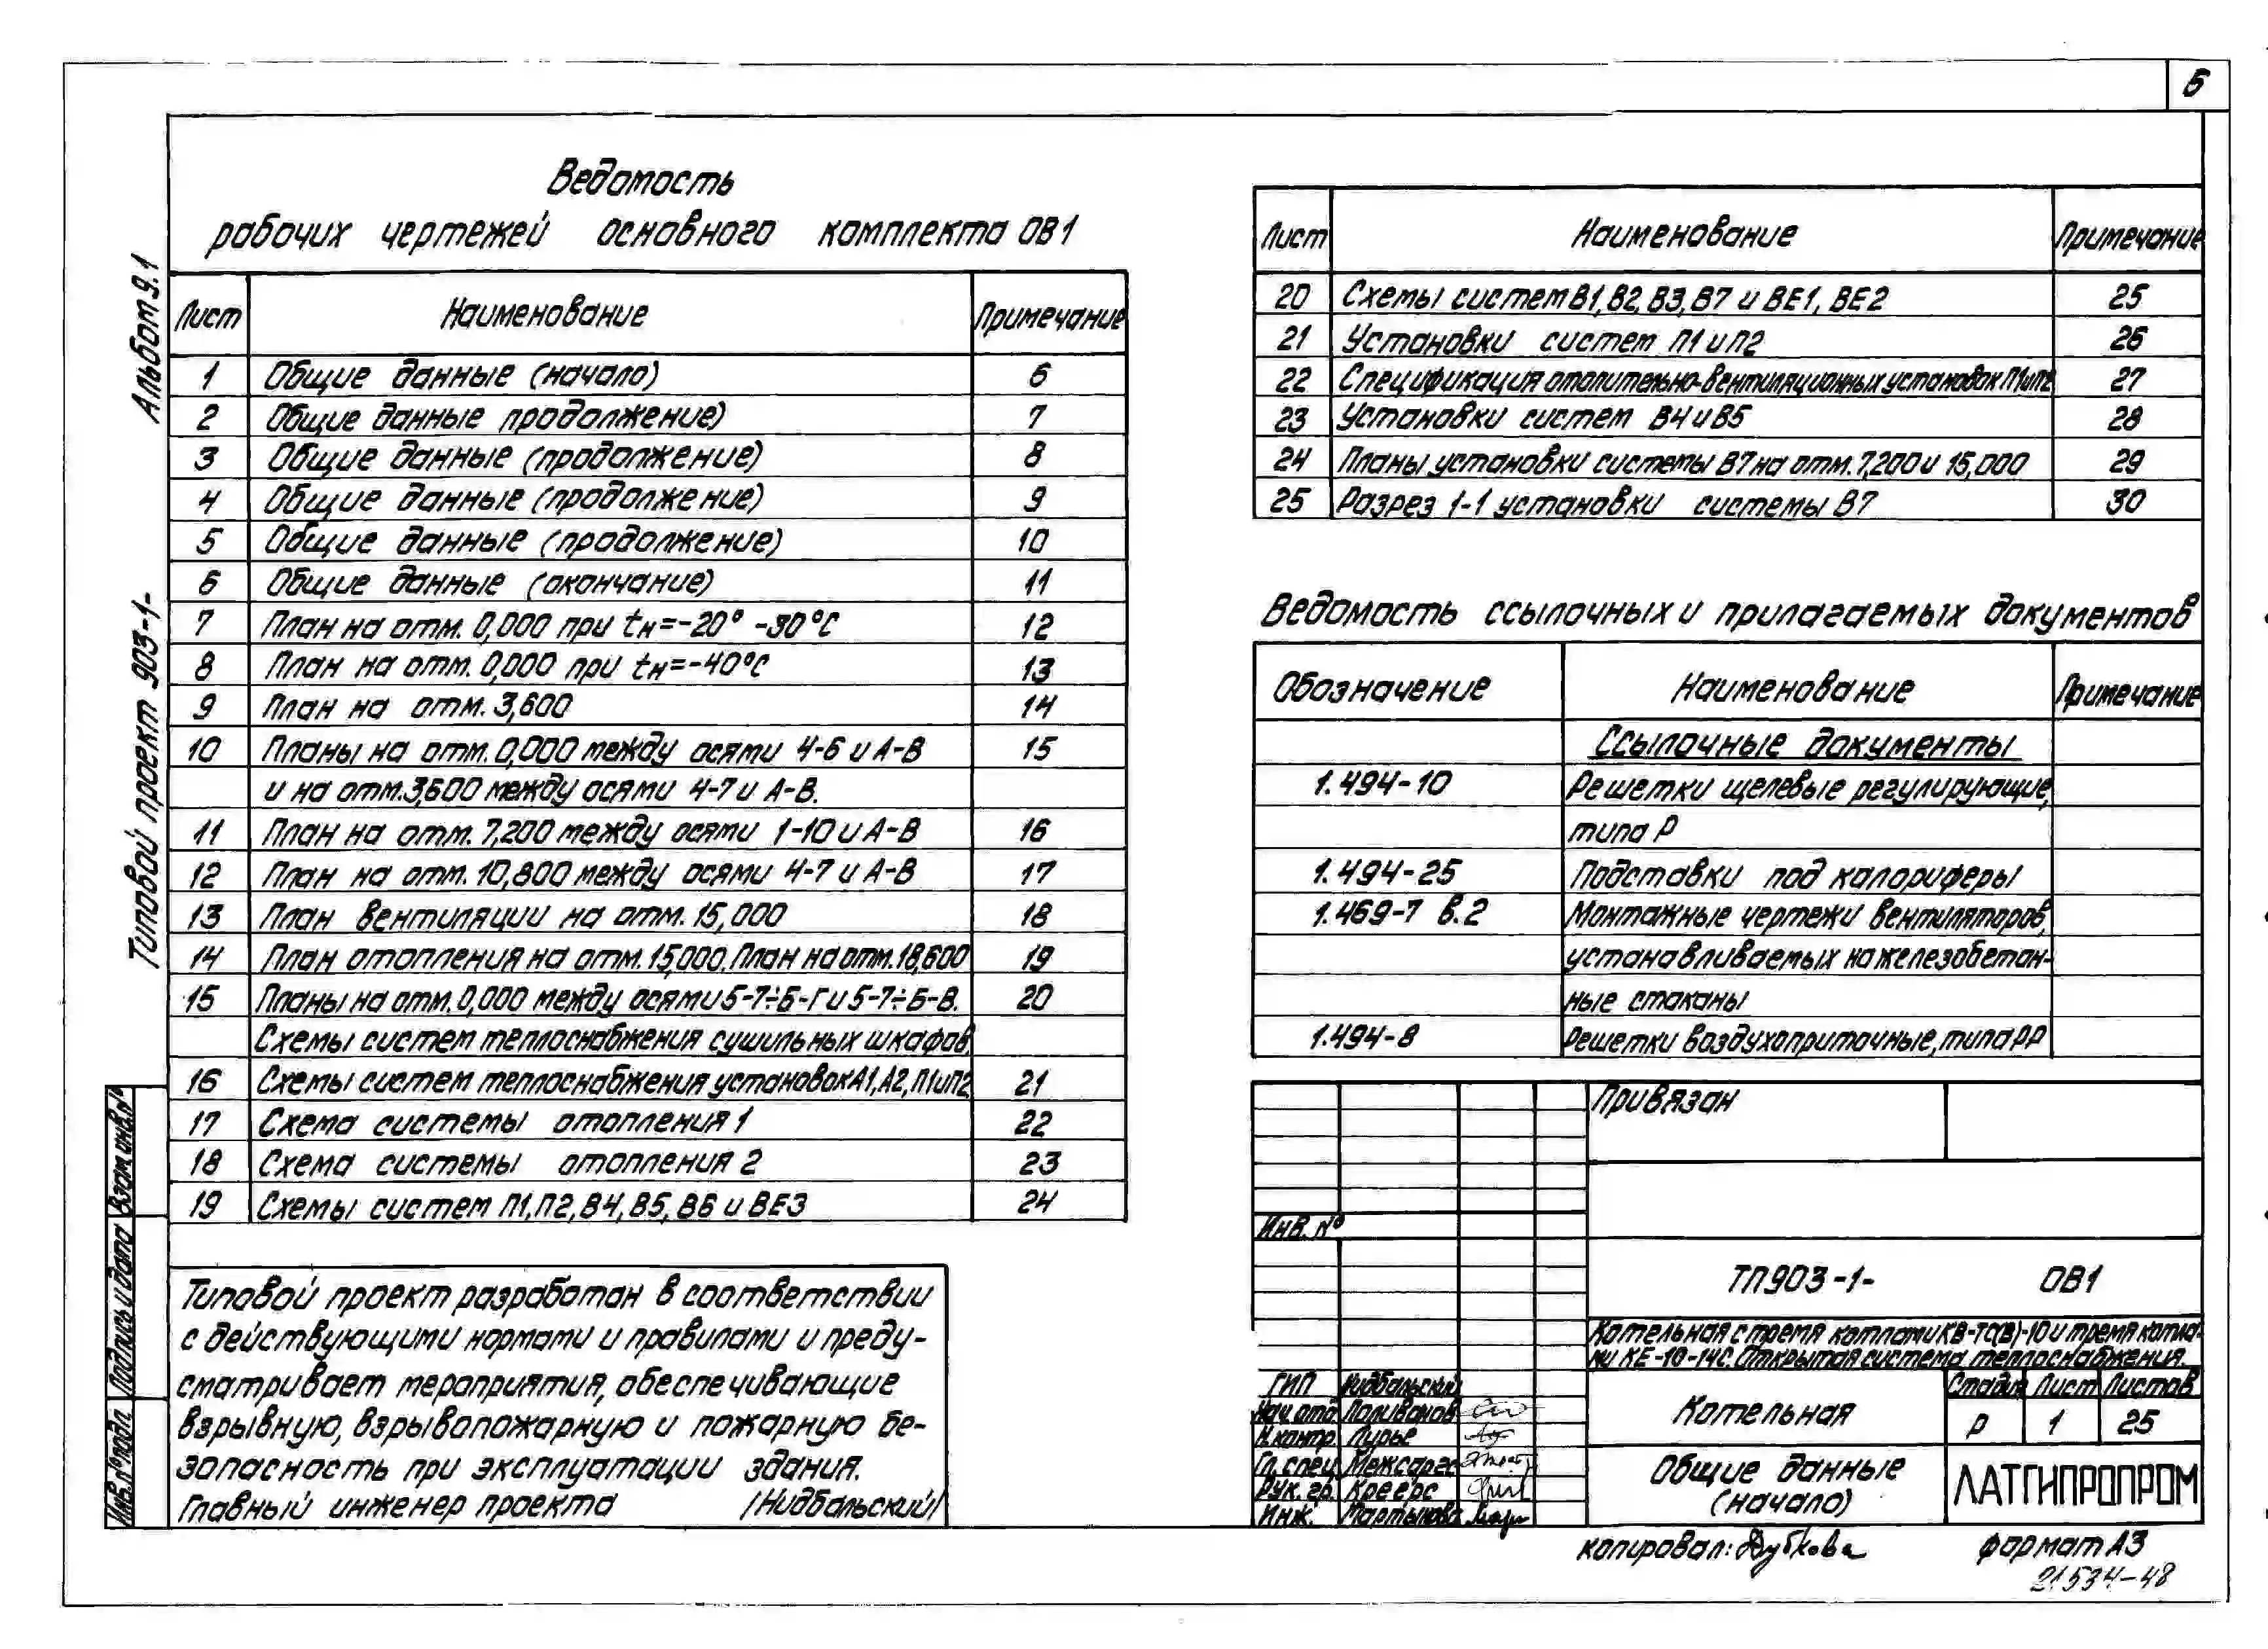 6
Альбом 9.1
Типовой проект 903-1-
Ведомость
рабочих чертежей основного комплекта ОВ1
Лист Наименование Примечание
1 Общие данные (начало) 6
2 Общие данные продолжение) 7
3 Общие данные (продолжение) 8
4 Общие данные (продолжение) 9
5 Общие данные (продолжение) 10
6 Общие данные (окончание) 11
7 План на отм. 0,000 при tн=-20° -30°С 12
8 План на отм. 0,000 при tн=-40°С 13
9 План на отм. 3,600 14
10 Планы на отм. 0,000 между осями 4-6 и А-В 15
и на отм. 3,600 между осями 4-7 и А-В.
11 План на отм. 7,200 между осями 1-10 и А-В 16
12 План на отм. 10,800 между осями 4-7 и А-В 17
13 План вентиляции на отм. 15,000 18
14 План отопления на отм. 15,000. План на отм. 18,600 19
15 Планы на отм. 0,000 между осями 5-7÷Б-Г и 5-7÷Б-В. 20
Схемы систем теплоснабжения сушильных шкафов.
16 Схемы систем теплоснабжения установок А1, А2, П1 и П2 21
17 Схема системы отопления 1 22
18 Схема системы отопления 2 23
19 Схемы систем П1, П2, В4, В5, В6 и ВЕ3 24
Типовой проект разработан в соответствии
с действующими нормами и правилами и преду-
сматривает мероприятия, обеспечивающие
взрывную, взрывопожарную и пожарную бе-
зопасность при эксплуатации здания.
Главный инженер проекта /Нидбальский/
Взам инв.№
Подпись и дата
Инв.№подл
Лист Наименование Примечание
20 Схемы систем В1, В2, В3, В7 и ВЕ1, ВЕ2 25
21 Установки систем П1 и П2 26
22 Спецификация отопительно-вентиляционных установок П1 и П2 27
23 Установки систем В4 и В5 28
24 Планы установки системы В7 на отм. 7,200 и 15,000 29
25 Разрез 1-1 установки системы В7 30
Ведомость ссылочных и прилагаемых документов
Обозначение Наименование Примечание
Ссылочные документы
1.494-10 Решетки щелевые регулирующие,
типа Р
1.494-25 Подставки под калориферы
1.469-7 в.2 Монтажные чертежи вентиляторов,
устанавливаемых на железобетон-
ные стаканы
1.494-8 Решетки воздухоприточные, типа РР
Привязан
Инв. №
ТП903-1- ОВ1
Котельная с тремя котлами КВ-ТС(В)-10 и тремя котла-
ми КЕ-10-14С. Открытая система теплоснабжения.
ГИП Нидбальский
Нач.отд Поливанов
Н.контр. Лурье
Гл.спец
Рук. гр. Креерс
Инж. Мартынова
Котельная
Стадия Лист Листов
Р 1 25
Общие данные
(начало)
ЛАТГИПРОПРОМ
копировал: Дубкова формат А3
21534-48